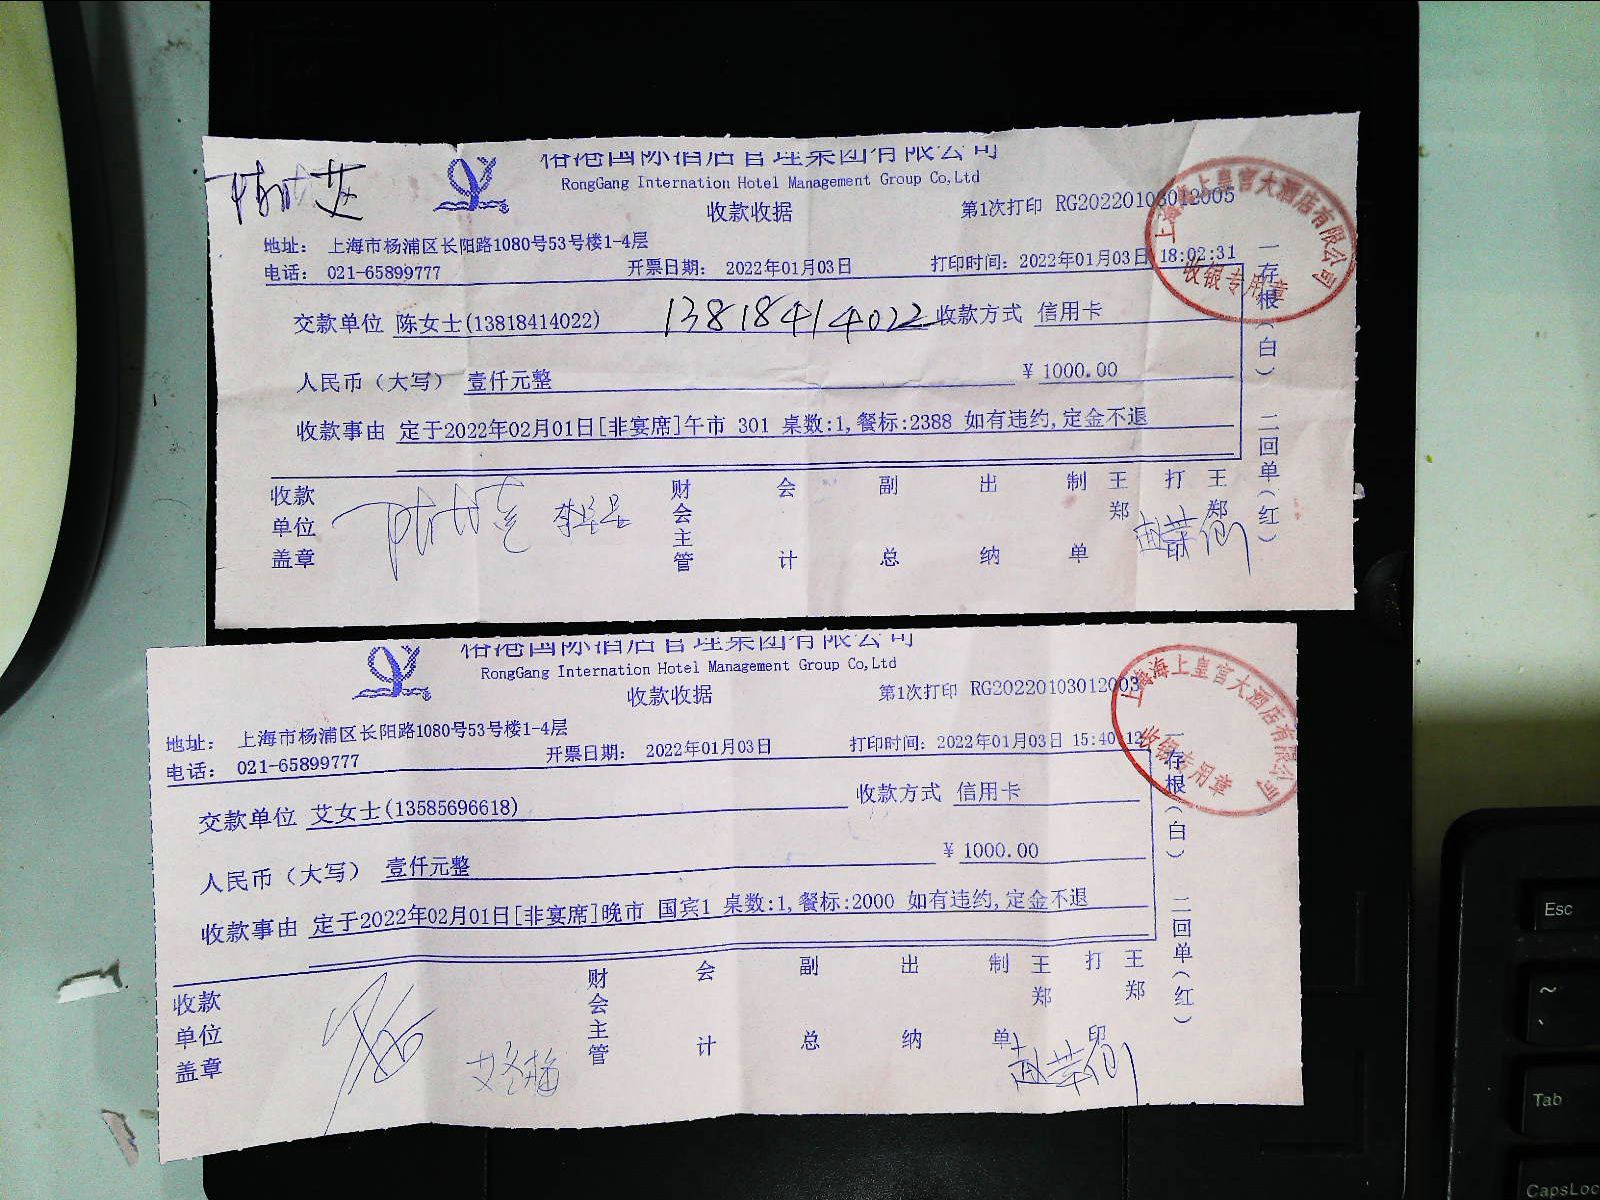 榕港国际酒店管理集团有限公司
RongGang Internation Hotel Management Group Co,Ltd
收款收据
第1次打印 RG20220103012005
地址： 上海市杨浦区长阳路1080号53号楼1-4层
电话： 021-65899777 开票日期： 2022年01月03日 打印时间：2022年01月03日 18:02:31
交款单位 陈女士(13818414022) 13818414022 收款方式 信用卡
人民币（大写） 壹仟元整 ¥ 1000.00
收款事由 定于2022年02月01日[非宴席]午市 301 桌数:1,餐标:2388 如有违约,定金不退
收款单位盖章 财会主管 会计 副总 出纳 制单 王郑 打 王郑
一存根（白） 二回单（红）
上海海上皇宫大酒店有限公司
收银专用章
榕港国际酒店管理集团有限公司
RongGang Internation Hotel Management Group Co,Ltd
收款收据
第1次打印 RG20220103012003
地址： 上海市杨浦区长阳路1080号53号楼1-4层
电话： 021-65899777 开票日期： 2022年01月03日 打印时间：2022年01月03日 15:40:12
交款单位 艾女士(13585696618) 收款方式 信用卡
人民币（大写） 壹仟元整 ¥ 1000.00
收款事由 定于2022年02月01日[非宴席]晚市 国宾1 桌数:1,餐标:2000 如有违约,定金不退
收款单位盖章 财会主管 会计 副总 出纳 制单 王郑 打印 王郑
一存根（白） 二回单（红）
上海海上皇宫大酒店有限公司
收银专用章
Esc
~
Tab
CapsLoc